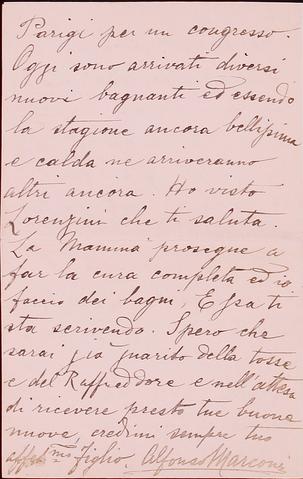 Parigi per un congresso.
Oggi sono arrivati diversi
nuovi bagnanti ed essendo
la stagione ancora bellissima
e calda ne arriveranno
altri ancora. Ho visto
Lorenzini che ti saluta.
La Mamma prosegue a
far la cura completa ed io
faccio dei bagni, Essa ti
sta scrivendo. Spero che
sarai già guarito della tosse
e del Raffreddore e nell'attesa
di ricevere presto tue buone
nuove, credimi sempre tuo
affmo figlio. Alfonso Marconi